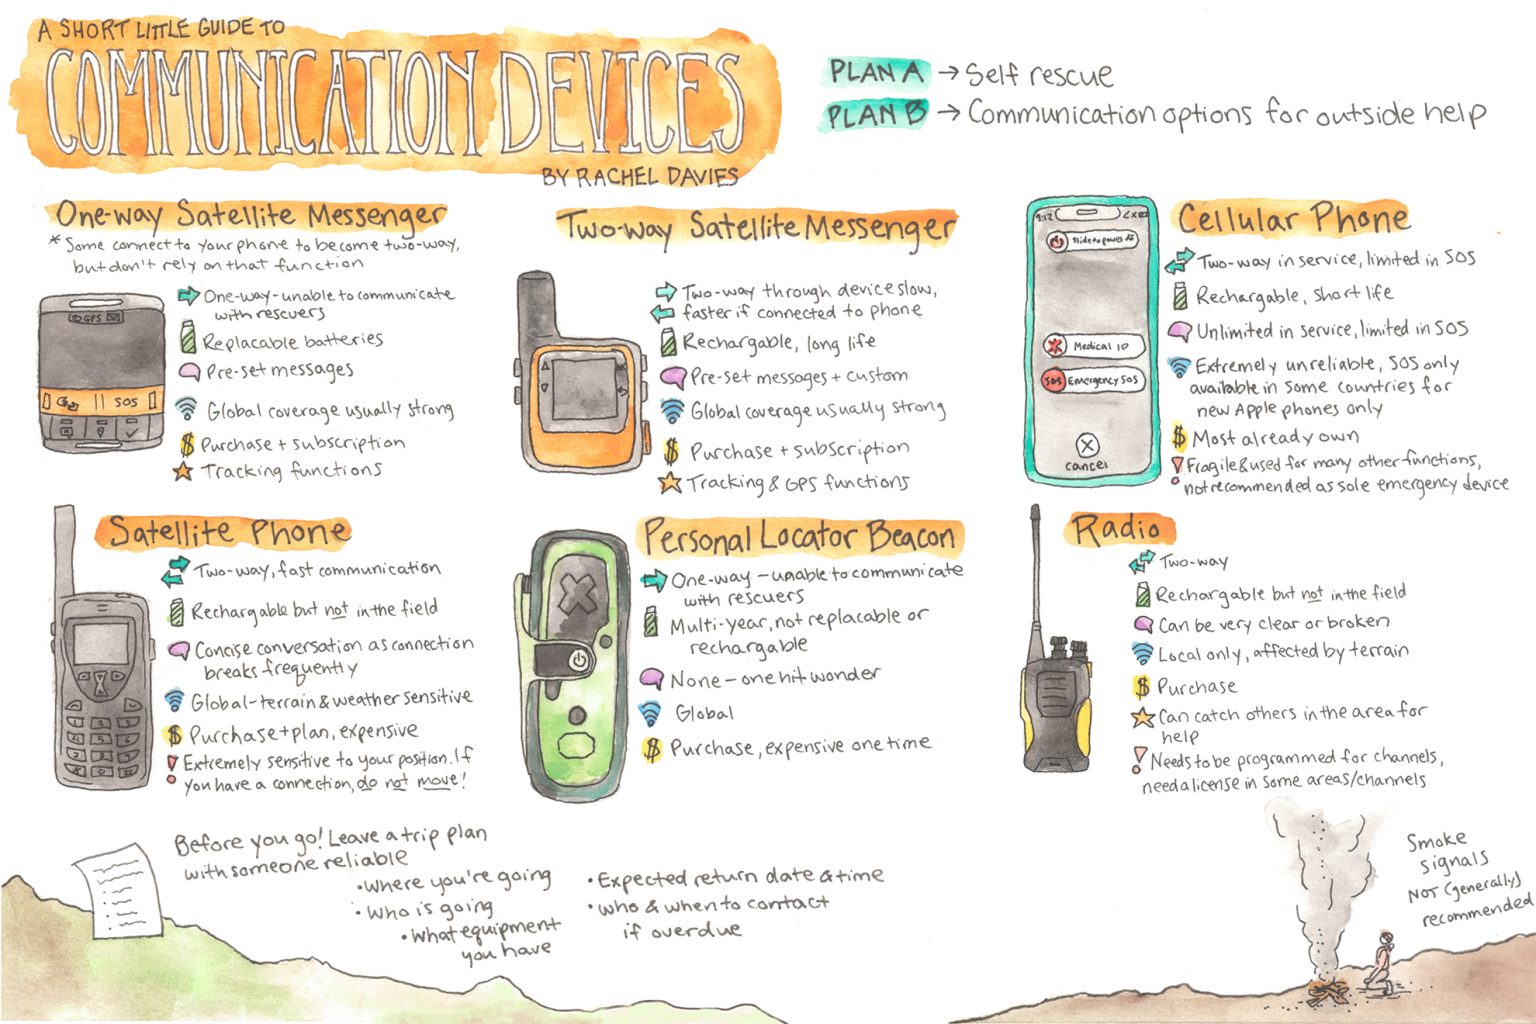 A SHORT LITTLE GUIDE TO
COMMUNICATION DEVICES
BY RACHEL DAVIES
PLAN A → Self rescue
PLAN B → Communication options for outside help
One-way Satellite Messenger
* Some connect to your phone to become two-way,
but don't rely on that function
GPS
SOS
One-way - unable to communicate
with rescuers
Replacable batteries
Pre-set messages
Global coverage usually strong
$ Purchase + subscription
Tracking functions
Two-way Satellite Messenger
Two-way through device slow,
faster if connected to phone
Rechargable, long life
Pre-set messages + custom
Global coverage usually strong
$ Purchase + subscription
Tracking & GPS functions
9:12
slide to power off
Medical ID
SOS Emergency SOS
cancel
Cellular Phone
Two-way in service, limited in SOS
Rechargable, short life
Unlimited in service, limited in SOS
Extremely unreliable, SOS only
available in some countries for
new Apple phones only
$ Most already own
! Fragile & used for many other functions,
not recommended as sole emergency device
Satellite Phone
Two-way, fast communication
Rechargable but not in the field
Concise conversation as connection
breaks frequently
Global - terrain & weather sensitive
$ Purchase + plan, expensive
! Extremely sensitive to your position. If
you have a connection, do not move!
Personal Locator Beacon
One-way - unable to communicate
with rescuers
Multi-year, not replacable or
rechargable
None - one hit wonder
Global
$ Purchase, expensive one time
Radio
Two-way
Rechargable but not in the field
Can be very clear or broken
Local only, affected by terrain
$ Purchase
Can catch others in the area for
help
! Needs to be programmed for channels,
need a license in some areas/channels
Before you go! Leave a trip plan
with someone reliable
• Where you're going
• Who is going
• What equipment
you have
• Expected return date & time
• Who & when to contact
if overdue
Smoke
signals
NOT (generally)
recommended